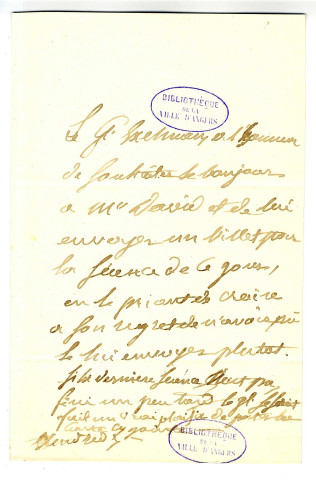 BIBLIOTHÈQUE
DE LA
VILLE D'ANGERS
Le Gl a l'honneur
de souhaiter le bonjour
a Mr David et de lui
envoyer un billet pour
la séance de ce jour,
en le priant de croire
a son regret de n'avoir pu
le lui envoyer plutot.
si la derniere séance n'eut pas
fini un peu tard le gl
fait un vrai plaisir de
ce jour
Vendredi
BIBLIOTHÈQUE
DE LA
VILLE D'ANGERS